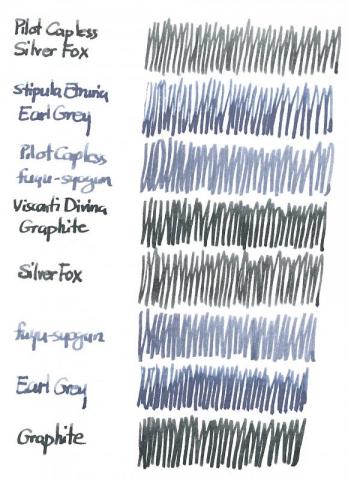 Pilot Capless
Silver Fox
Stipula Etruria
Earl Grey
Pilot Capless
fuyu-syogun
Visconti Divina
Graphite
Silver Fox
fuyu-syogun
Earl Grey
Graphite